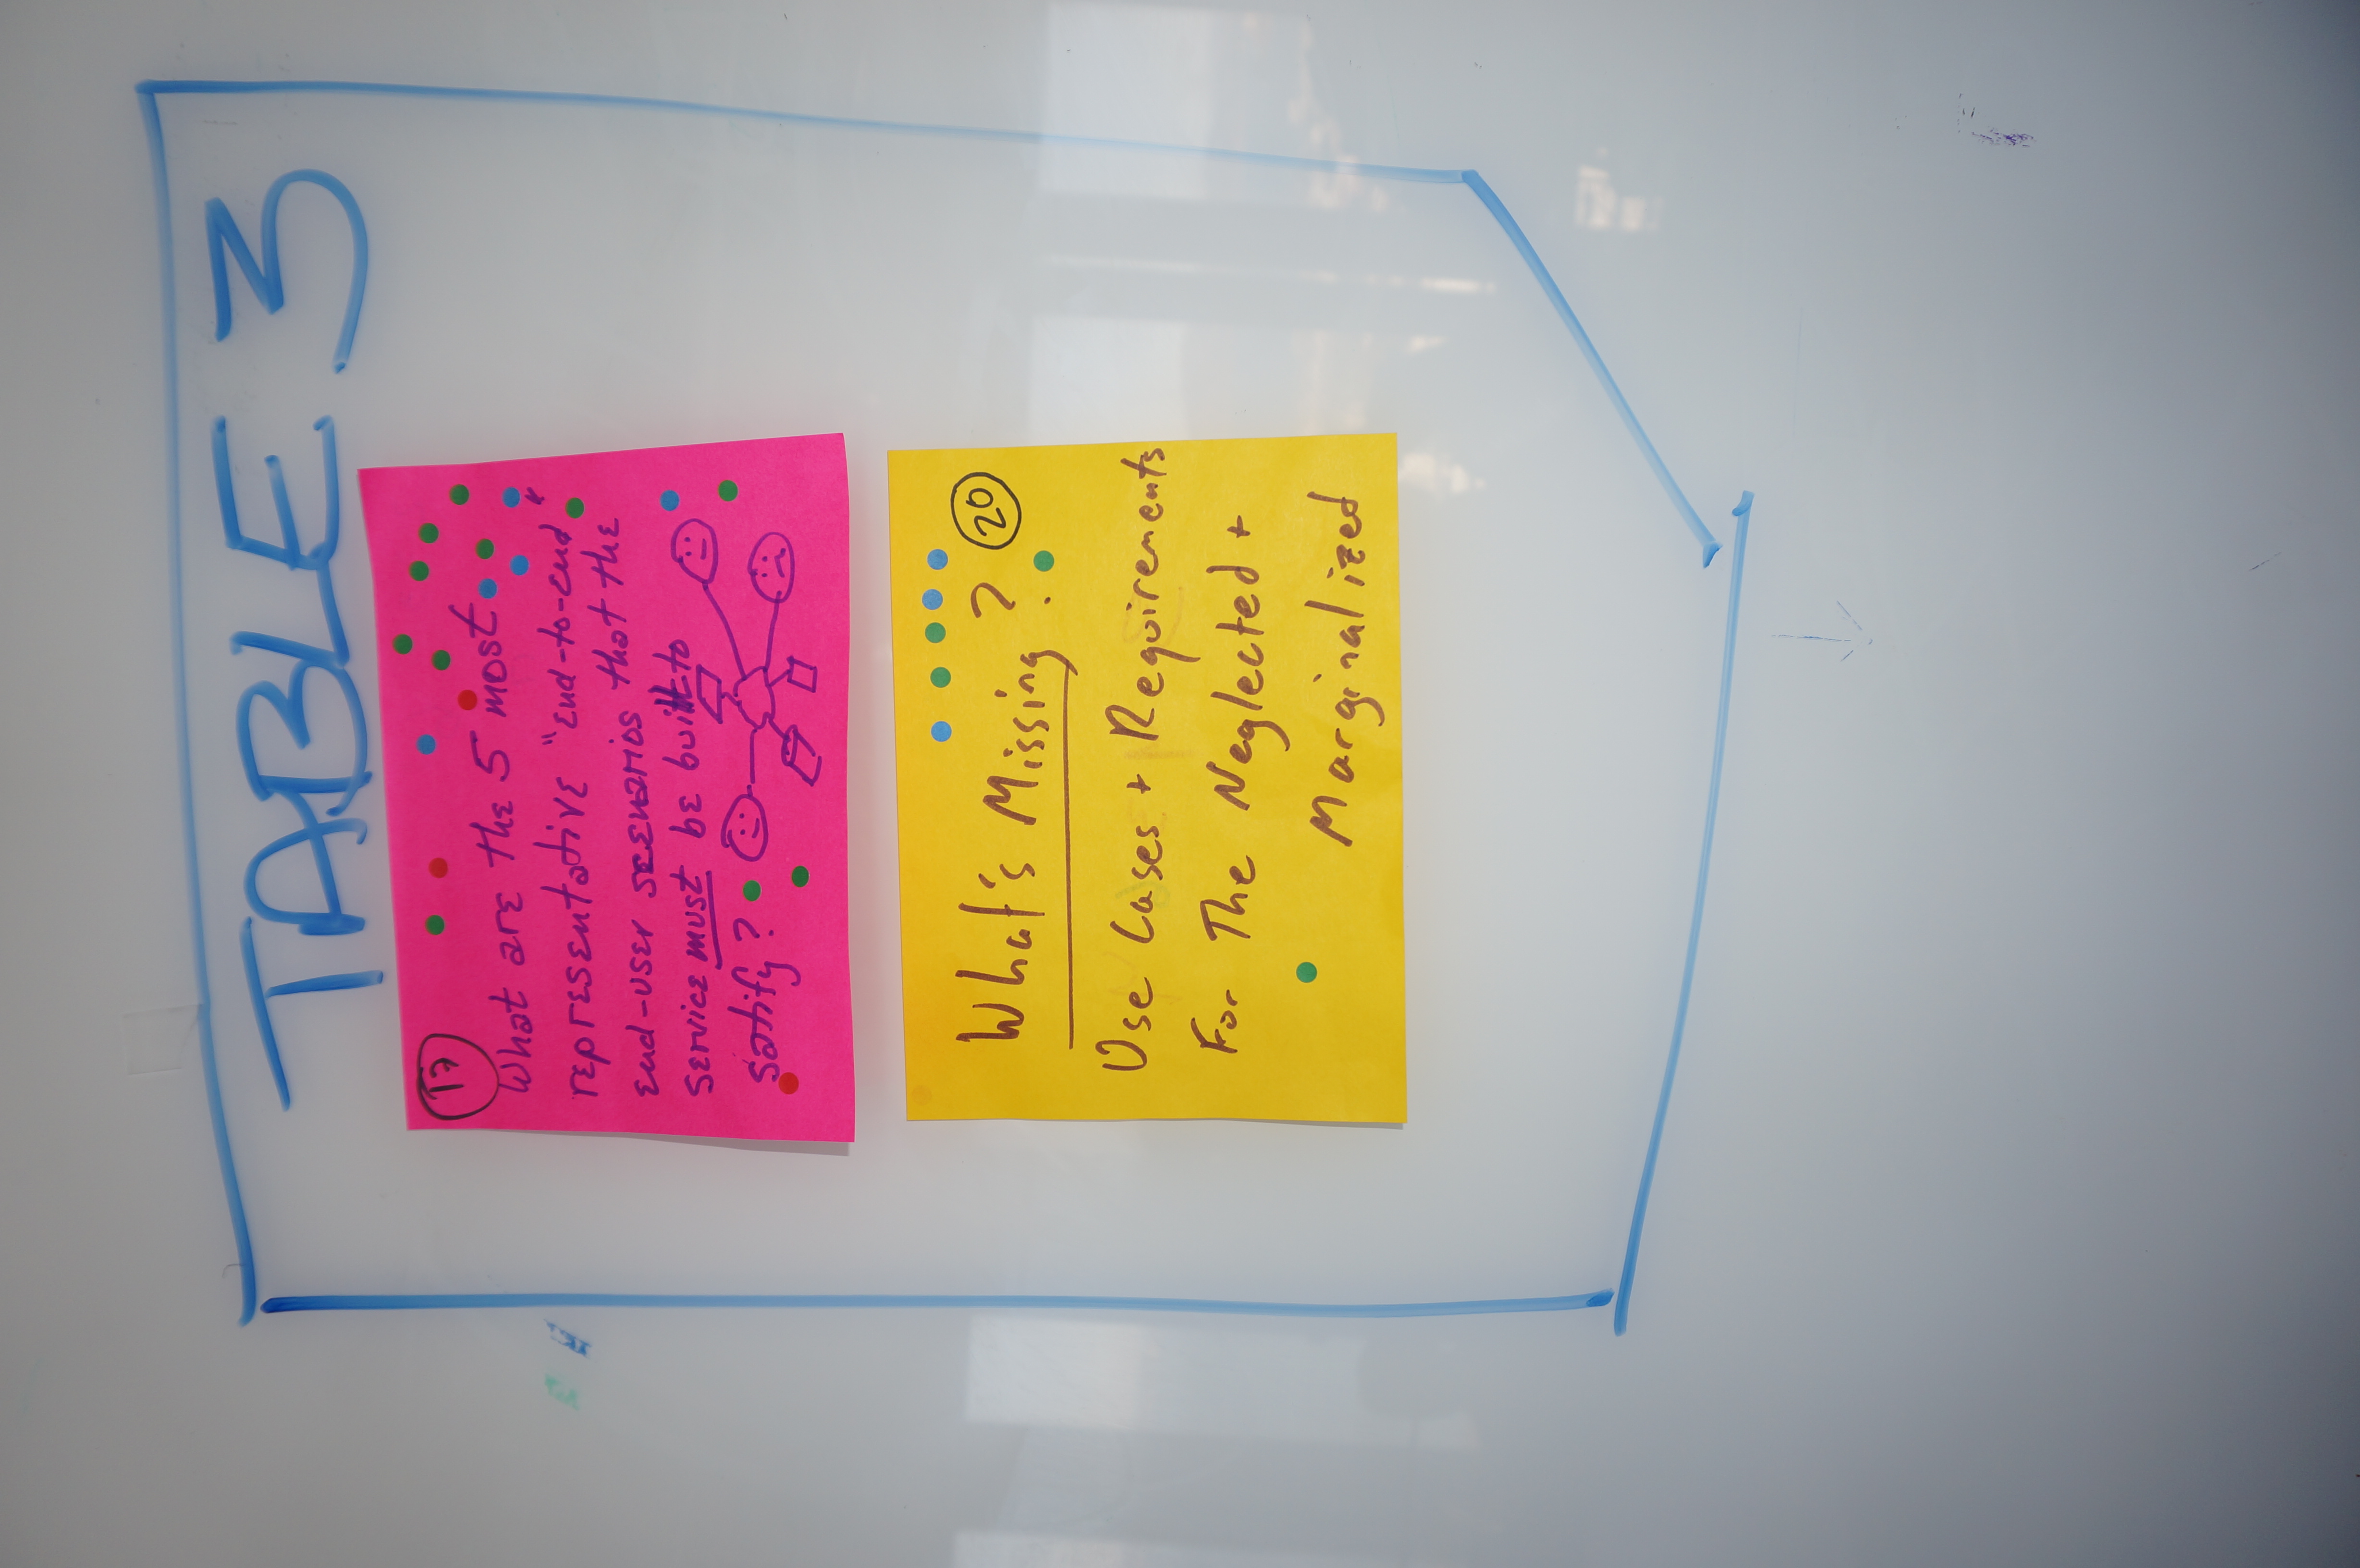 TABLE 3
17
What are the 5 most
representative "end-to-end"
end-user scenarios that the
service must be built to
satify?
What's Missing?
20
Use Cases + Requirements
For The Neglected +
Marginalized